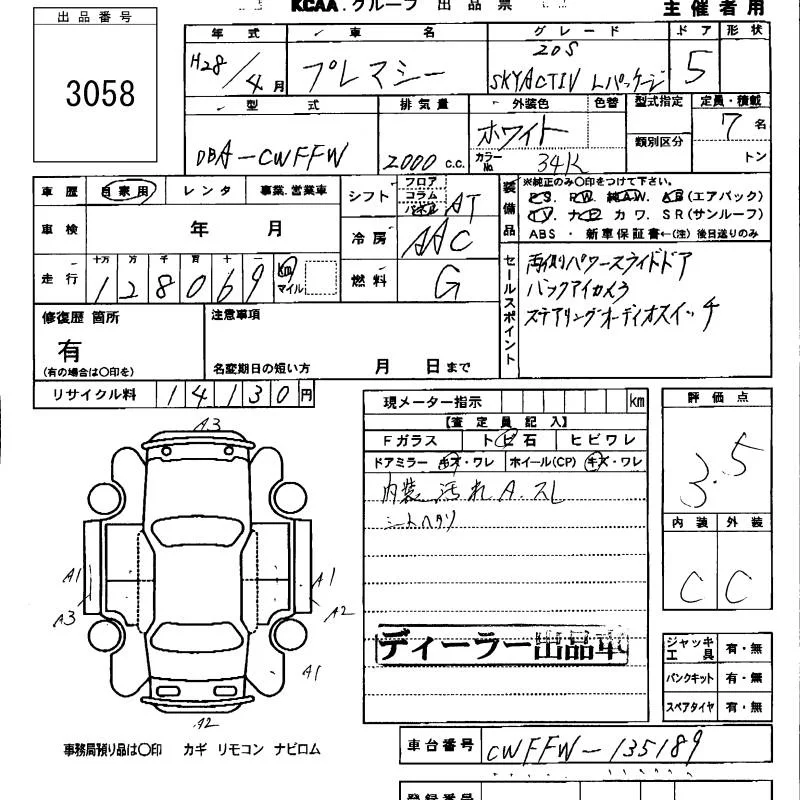 出品番号
3058
KCAA.グループ 出品票
主催者用
年式 車名 グレード ドア 形状
H28/4月 プレマシー 20S
SKYACTIV Lパッケージ 5
型式 排気量 外装色 色替 型式指定 定員・積載
DBA-CWFFW 2000 c.c. ホワイト
カラーNo. 34K
類別区分
7名
トン
車歴 自家用 レンタ 事業.営業車
車検 年 月
走行 十万 万 千 百 十 一
128069 Km マイル
シフト フロア コラム AT
冷房 AAC
燃料 G
装備品
※純正のみ○印をつけて下さい。
P.S. P.W. 純A.W. A.B(エアバック)
T.V. ナビ カワ. SR(サンルーフ)
ABS ・ 新車保証書←(注)後日送りのみ
セールスポイント
両側パワースライドドア
バックアイカメラ
ステアリングオーディオスイッチ
修復歴 箇所
有
(有の場合は○印を)
注意事項
名変期日の短い方 月 日まで
リサイクル料 14130円
現メーター指示 km
【査定員記入】
Fガラス トビ石 ヒビワレ
ドアミラー キズ・ワレ ホイール(CP) キズ・ワレ
内装 汚れ A.スレ
シートヘタリ
ディーラー出品車
評価点
3.5
内装 外装
C C
ジャッキ工具 有・無
パンクキット 有・無
スペアタイヤ 有・無
A3
A1
A3
A1
A2
A1
A2
事務局預り品は○印 カギ リモコン ナビロム
車台番号 CWFFW-135189
登録番号